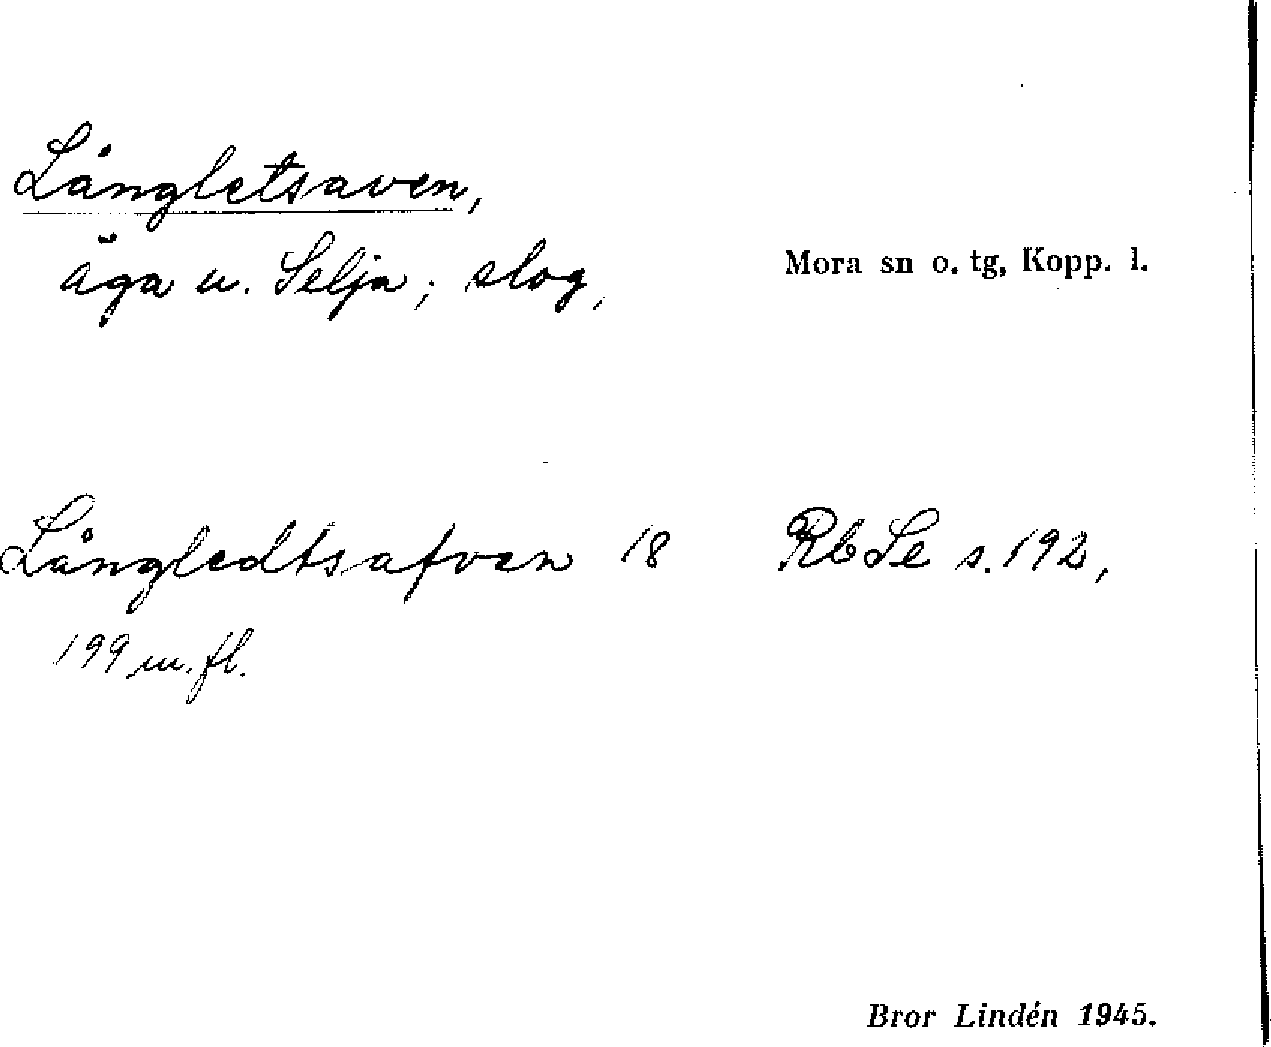 Långletsaven,
äga u. Selja; slog,
Mora sn o. tg, Kopp. l.
Långledtsafven 18 Rb Se s. 192,
199 m. fl.
Bror Lindén 1945.